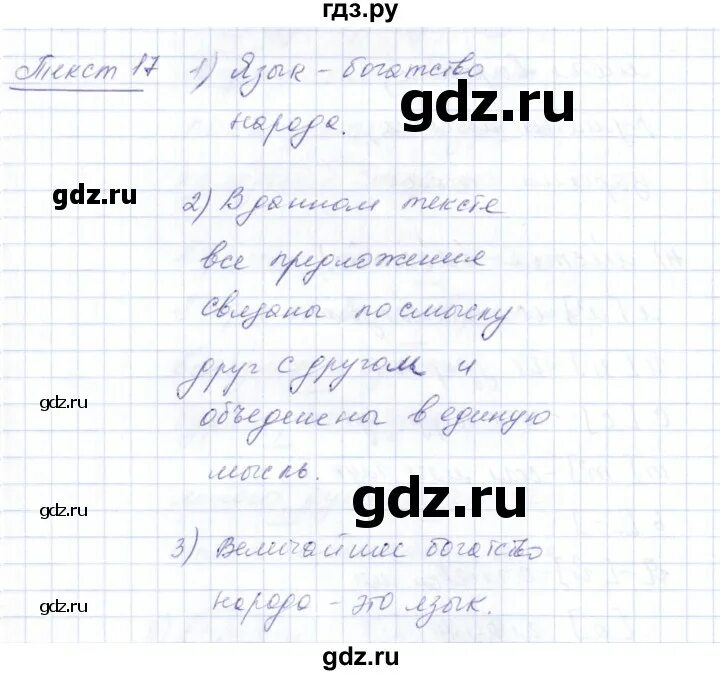 гдз.ру
Текст 17 1) Язык - богатство
gdz.ru
народа.
gdz.ru
2) В данном тексте
все предложения
связаны по смыслу
друг с другом и
gdz.ru
объеденены в единую
мысль.
gdz.ru
gdz.ru
3) Величайшее богатство
gdz.ru
народа - это язык.
gdz.ru